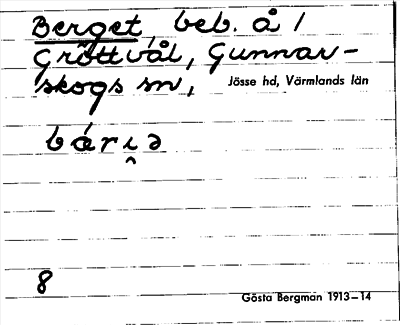 Berget, beb. å /
Gröttvål, Gunnar-
skogs sn, Jösse hd, Värmlands län
bári̯ə
8
Gösta Bergman 1913—14